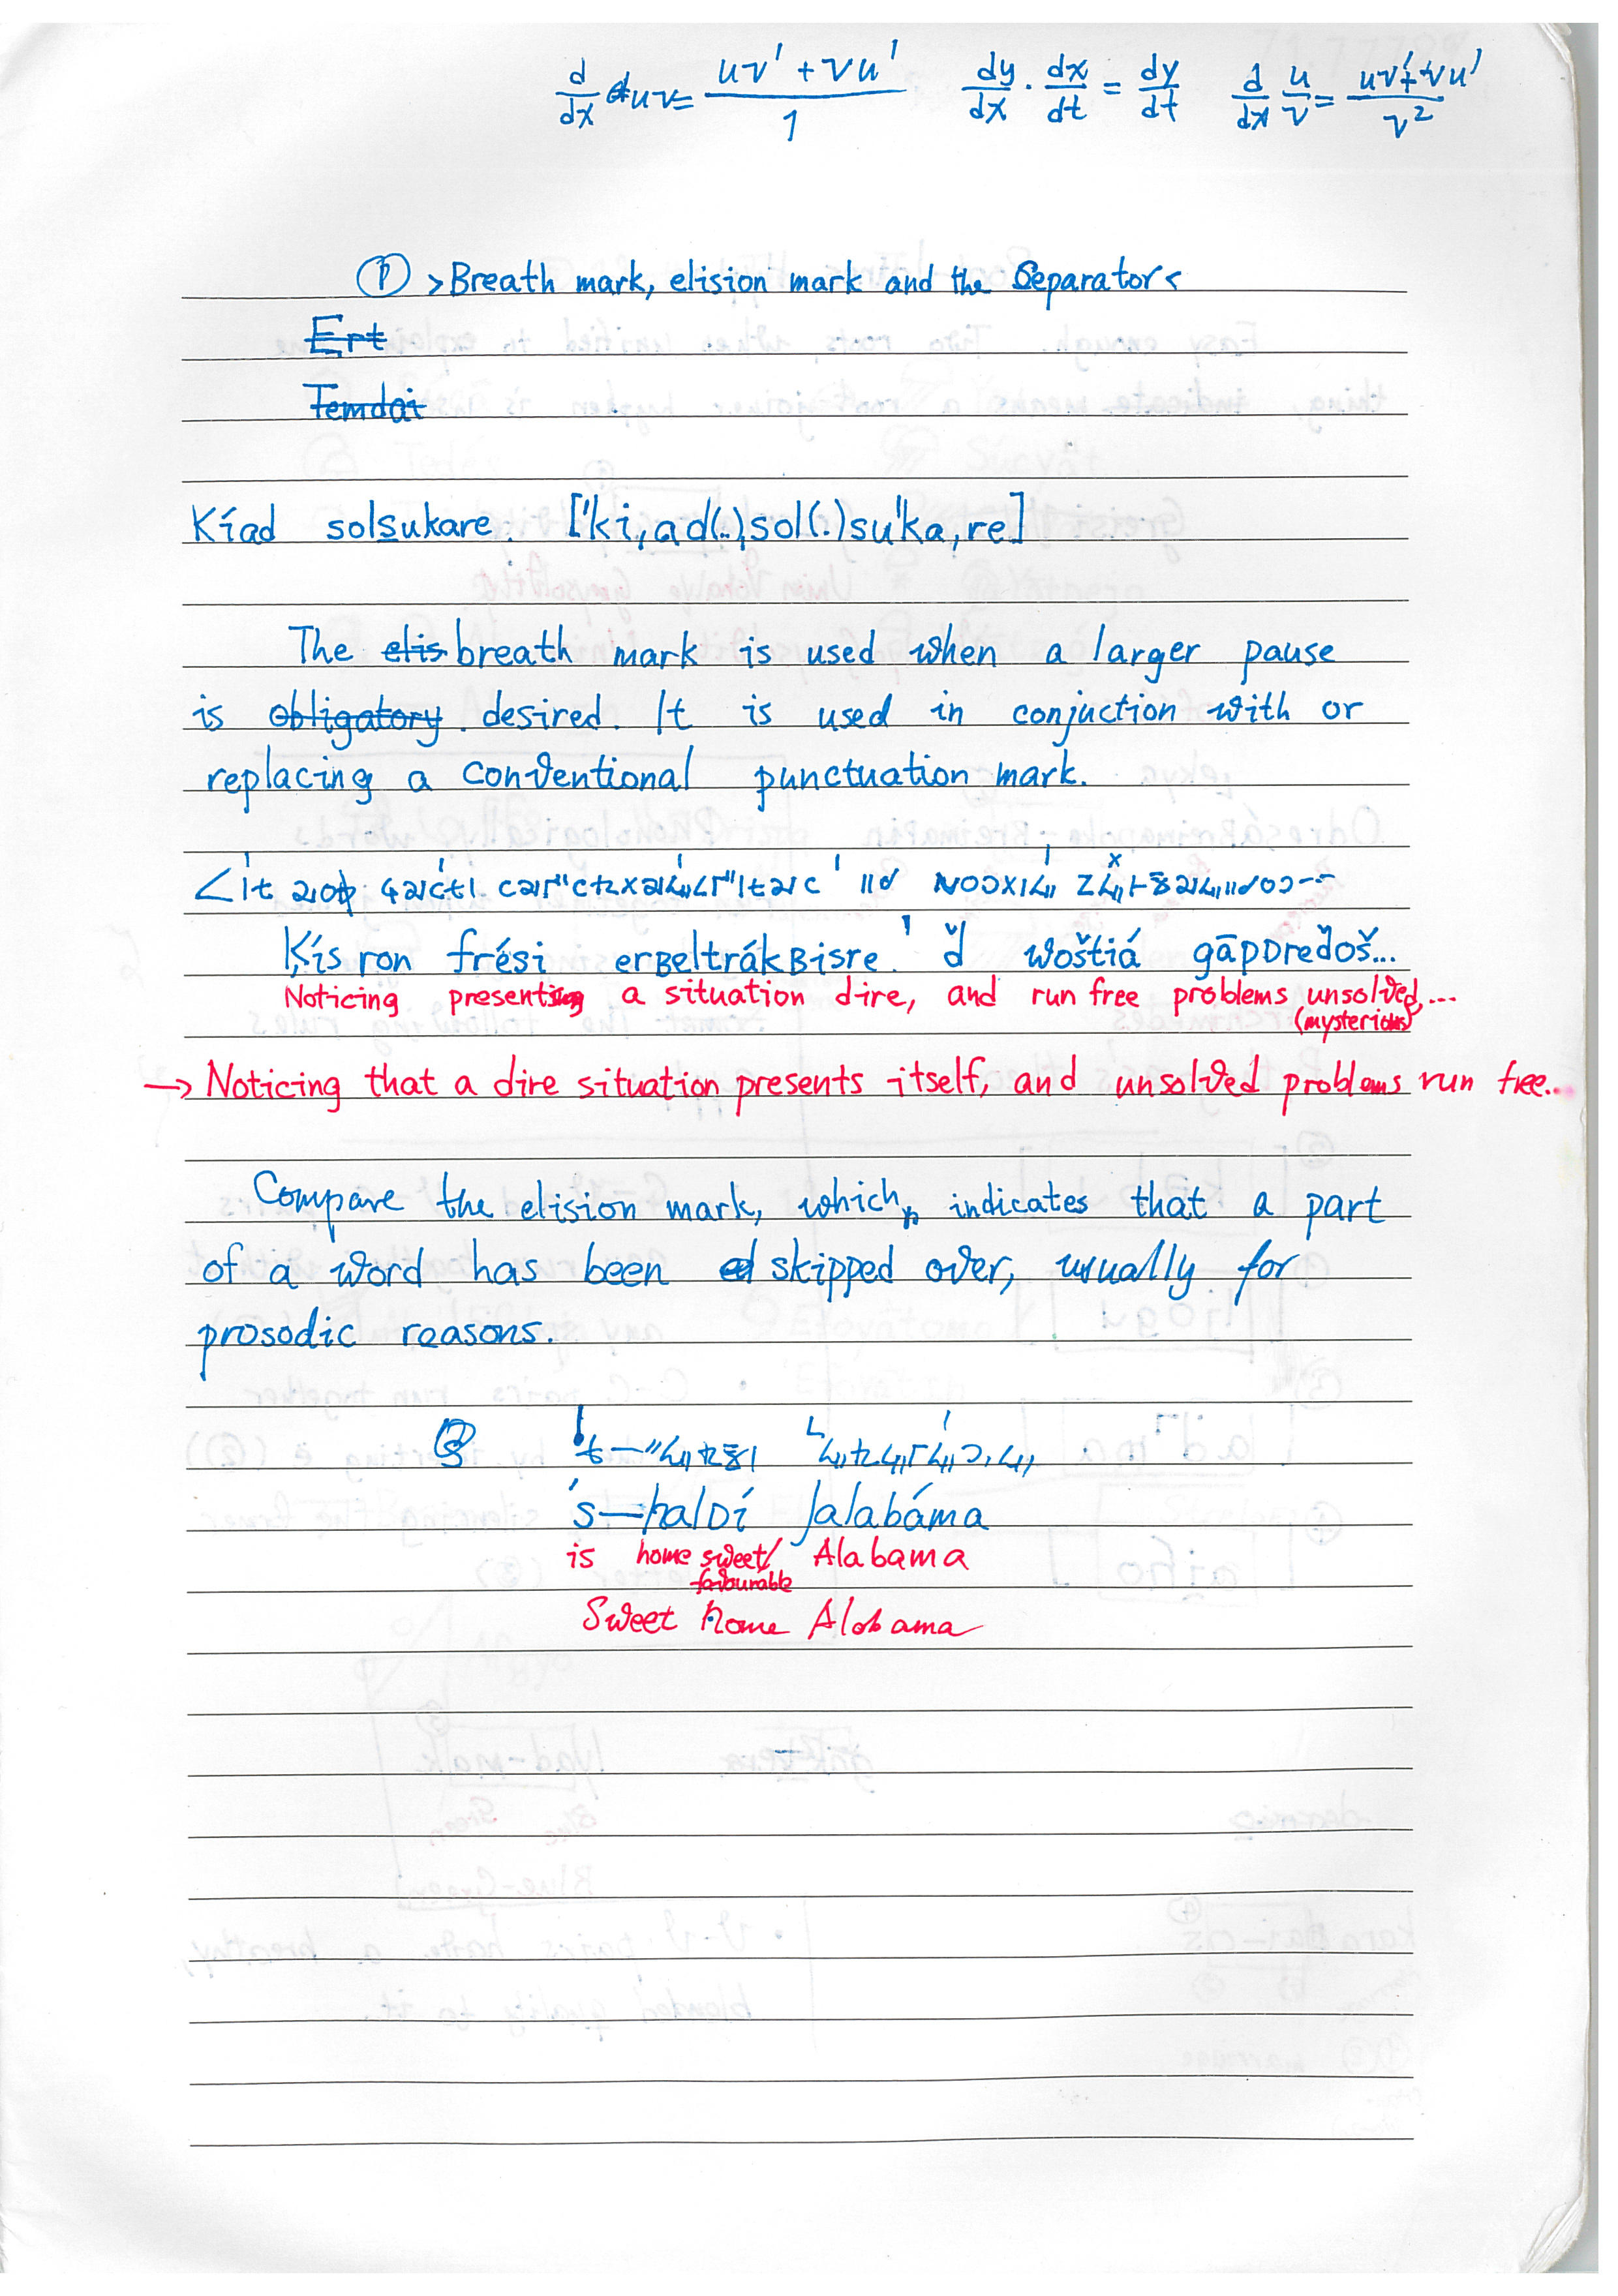 d/dx uv = (uv' + vu')/1   dy/dx · dx/dt = dy/dt   d/dx u/v = (uv' + vu')/v²
① >Breath mark, elision mark and the Separators
Ert
Temdai
Kíad solsukare. ['ki,ad(.)sol(.)su'ka,re]
The elis breath mark is used when a larger pause
is obligatory desired. It is used in conjuction with or
replacing a conventional punctuation mark.
Ķís ron frési erBeltrákBisre.' ď woštiá gāpDreďoš...
Noticing presenting a situation dire, and run free problems unsolved,...
(mysterious)
→ Noticing that a dire situation presents itself, and unsolved problems run free...
Compare the elision mark, which, indicates that a part
of a word has been skipped over, usually for
prosodic reasons.
's—halDí Jalabáma
is home sweet/ Alabama
favourable
Sweet Home Alabama